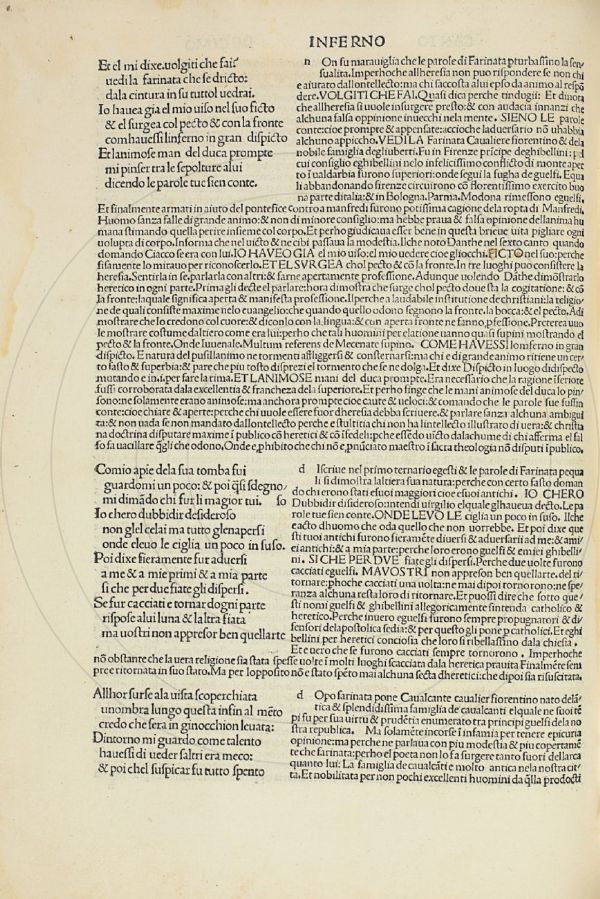 INFERNO
Et el mi dixe. uolgiti che fai
uedi la farinata che se dricto:
dala cintura in su tuttol uedrai.
Io hauea gia el mio uiso nel suo ficto
& el surgea col pecto & con la fronte
com hauessi linferno in gran dispicto
Et lanimose man del duca prompte
mi pinser tra le sepolture a lui
dicendo le parole tue sien conte.
n On su marauiglia che le parole di Farinata pturbassino la sen/
sualita. Imperhoche allheresia non puo rispondere se non chi
e aiutato dallontellecto: ma chi saccosta alui epso da animo al respõ
dere. VOLGITI CHE FAI. Quasi dica perche tindugii: Et dinota
che allheresia si uuole insurgere presto: & con audacia innanzi che
alchuna falsa oppinione inuechi nela mente. SIENO LE parole
conte: cioe prompte & appensate: accioche laduersario nõ uhabbia
alchuno appiccho. VEDI LA Farinata Caualiere fiorentino & dela
nobile famiglia degliuberti. Fu in Firenze prĩcipe deghibellini: pe
cui consiglio eghibellini nelo infelicissimo conflicto di monte aper
to i ualdarbia furono superiori: onde segui la fugha de guelfi. Equa
li abbandonando firenze circuirono cõ florentissimo exercito buo
na parte ditalia: & in Bologna. Parma. Modona rimessono eguelfi.
Et finalmente armati in aiuto del pontefice contro a manfredi furono potissima cagione dela ropta di Manfredi.
Huomo sanza falle di grande animo: & non di minore consiglio: ma hebbe praua & falsa opinione dellanima hu
mana stimando quella perire insieme col corpo. Et perho giudicaua esser bene in questa brieue uita pigliare ogni
uolupta di corpo. Informa che nel uicto & ne cibi passaua la modestia. Ilche noto Danthe nel sexto canto quando
domando Ciacco se era con lui. IO HAVEO GIA el mio uiso: el mio uedere cioe gliocchi. FICTO nel suo: perche
fisamente lo miraua per riconoscerlo. ET EL SVRGEA chol pecto & cõ la fronte. In tre luoghi puo consistere la
heresia. Sentirla in se. parlarla con altri: & farne apertamente professione. Adunque uolendo Dãthe dimostrarlo
heretico in ogni parte. Prima gli decte el parlare: hora dimostra che surge chol pecto doue sta la cogitatione: & cõ
la fronte: laquale significa aperta & manifesta professione. Ilperche a laudabile institutione de christiani: la religio/
ne de quali consiste maxime nelo euangelio: che quando quello odono segnono la fronte. la bocca: & el pecto. Adi
mostrare che lo credono col cuore: & diconlo con la lingua: & con aperta fronte ne fanno pfessione. Preterea uuo
le mostrare costume daltiero come era lui: perho che tali huomini per elatione uanno quasi supini mostrando el
pecto & la fronte. Onde Iuuenale. Multum referens de Mecenate supino. COME HAVESSI lonferno in gran
dispicto. E natura del pusillanimo ne tormenti affliggersi & consternarsi: ma chi e di grande animo ritiene un cer/
to fasto & superbia: & pare che piu tosto disprezi el tormento che se ne dolga. Et dixe Dispicto in luogo di dispecto
mutando e in i. per fare la rima. ET LANIMOSE mani del duca prompte. Era necessario che la ragione ĩferiore
fussi corroborata dala excellentia & franceza dela superiore. Et perho finge che le mani animose del duca lo pin/
sono: ne solamente erano animose: ma anchora prompte cioe caute & ueloci: & comando che le parole sue fussin
conte: cioe chiare & aperte: perche chi uuole essere fuor dheresia debba scriuere. & parlare sanza alchuna ambigui
ta: & non uada se non mandato dallontellecto perche e stultitia chi non ha lintellecto illustrato di uera: & christia
na doctrina disputare maxime ĩ publico cõ heretici & cõ ĩfedeli: pche essẽdo uicto dala chume di chi afferma el fal
so fa uacillare q̃gli che odono. Onde e phibito che chi nõ e pnũciato maestro ĩ sacra theologia nõ disputi ĩ publico.
Comio apie dela sua tomba fui
guardomi un poco: & poi q̃si sdegno/
mi dimãdo chi fur li magior tui. so
Io chero dubbidir desideroso
non glel celai ma tutto glenapersi
onde eleuo le ciglia un poco in suso.
Poi dixe fieramente fur aduersi
a me & a mie primi & a mia parte
si che per due fiate gli dispersi.
Se fur cacciati e tornar dogni parte
rispose alui luna & laltra fiata
ma uostri non appresor ben quellarte
d Iscriue nel primo ternario egesti & le parole di Farinata pequa
li si dimostra laltiera sua natura: perche con certo fasto doman
do chi erono stati esuoi maggiori cioe esuoi antichi. IO CHERO
Dubbidir disideroso: intendi uirgilio elquale glhauea decto: Le pa
role tue sien conte. ONDE LEVO LE ciglia un poco in suso. Ilche
e acto dhuomo che oda quello che non uorrebbe. Et poi dixe que
sti tuoi antichi furono fieramẽte diuersi & aduersarii ad me: & a mi/
ei antichi: & a mia parte: perche loro erono guelfi & e miei ghibelli/
ni. SI CHE PER DVE fiate gli dispersi. Perche due uolte furono
cacciati eguelfi. MA VOSTRI non appreson ben quellarte. del ri/
tornare: phoche cacciati una uolta: ne mai dipoi tornorono: ne spe/
ranza alchuna resta loro di ritornare. Et puossi dire che sotto que/
sti nomi guelfi & ghibellini allegoricamente sintenda catholico &
heretico. Perche inuero eguelfi furono sempre propugnatori & di
fensori delapostolica sedia: & per questo gli pone p catholici. Et eghi
bellini per heretici conciosia che loro si ribellassino dala chiesa.
Et e uero che se furono cacciati sempre tornorono. Imperhoche
nõ obstante che la uera religione sia stata spesse uolte ĩ molti luoghi scacciata dala heretica prauita Finalmẽte sem
pre e ritornata in suo stato. Ma per lopposito nõ e stato spẽto mai alchuna secta dheretici: che dipoi sia risuscitata.
Allhor surse ala uista scoperchiata
unombra lungo questa infin al mẽto
credo che sera in ginocchion leuata:
Dintorno mi guardo come talento
hauessi di ueder saltri era meco:
& poi chel suspicar fu tutto spento
d Opo farinata pone Caualcante caualier fiorentino nato delã
tica & splendidissima famiglia de caualcanti elquale ne suoi tẽ
pi fu per sua uirtu & prudẽtia enumerato tra principi guelfi dela no
stra republica. Ma solamẽte incorse ĩ infamia per tenere epicuria
opinione: ma perche ne parlaua con piu modestia & piu copertamẽ
te che farinata: perho el poeta non lo fa surgere tanto fuori dellarca
quanto lui: La famiglia de caualcãti e molto antica nela nostra cit/
ta. Et nobilitata per non pochi excellenti huomini da q̃lla prodocti